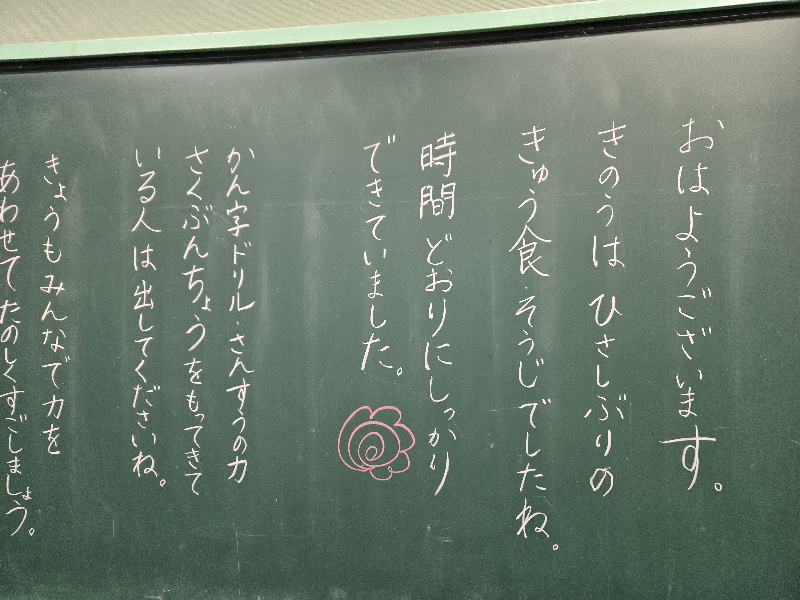 おはようございます。
きのうは ひさしぶりの
きゅう食・そうじでしたね。
時間どおりにしっかり
できていました。
かん字ドリル・さんすうの力
さくぶんちょうをもってきて
いる人は出してくださいね。
きょうもみんなで力を
あわせてたのしくすごしましょう。